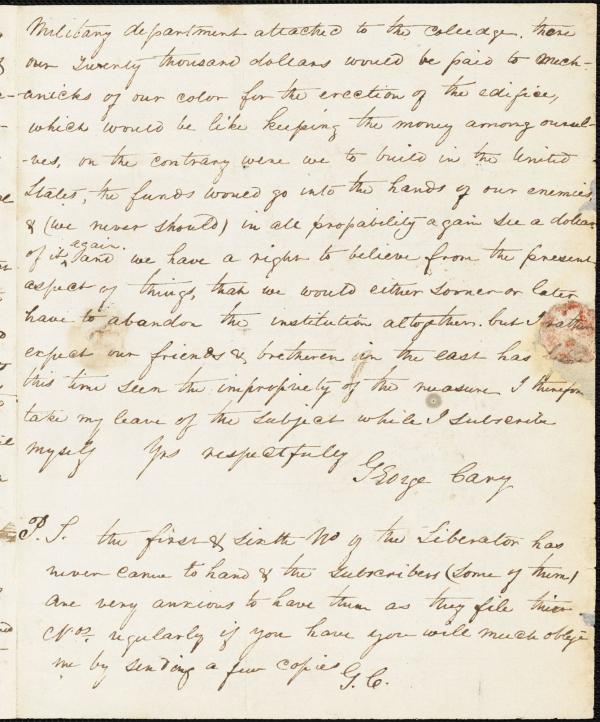 Military department attached to the colledge. there
our Twenty thousand dollars would be paid to Mech-
anicks of our color for the erection of the edifice,
which would be like keeping the money among oursel-
-ves, on the contrary were we to build in the United
States, the funds would go into the hands of our enemies
& (we never should) in all propability again see a dollar
of it, again. and we have a right to believe from the present
aspect of things, that we would either sooner or later
have to abandon the institution altogether. but I rather
expect our friends & bretheren in the east has
this time seen the impropriety of the measure I therefore
take my leave of the subject while I subscribe
myself Yrs respectfully
George Cary
P. S. the first & sixth No of the Liberator has
never came to hand & the subscribers (some of them)
are very anxious to have them as they file their
Nos. regularly if you have you will much oblige
me by sending a few copies G. C.